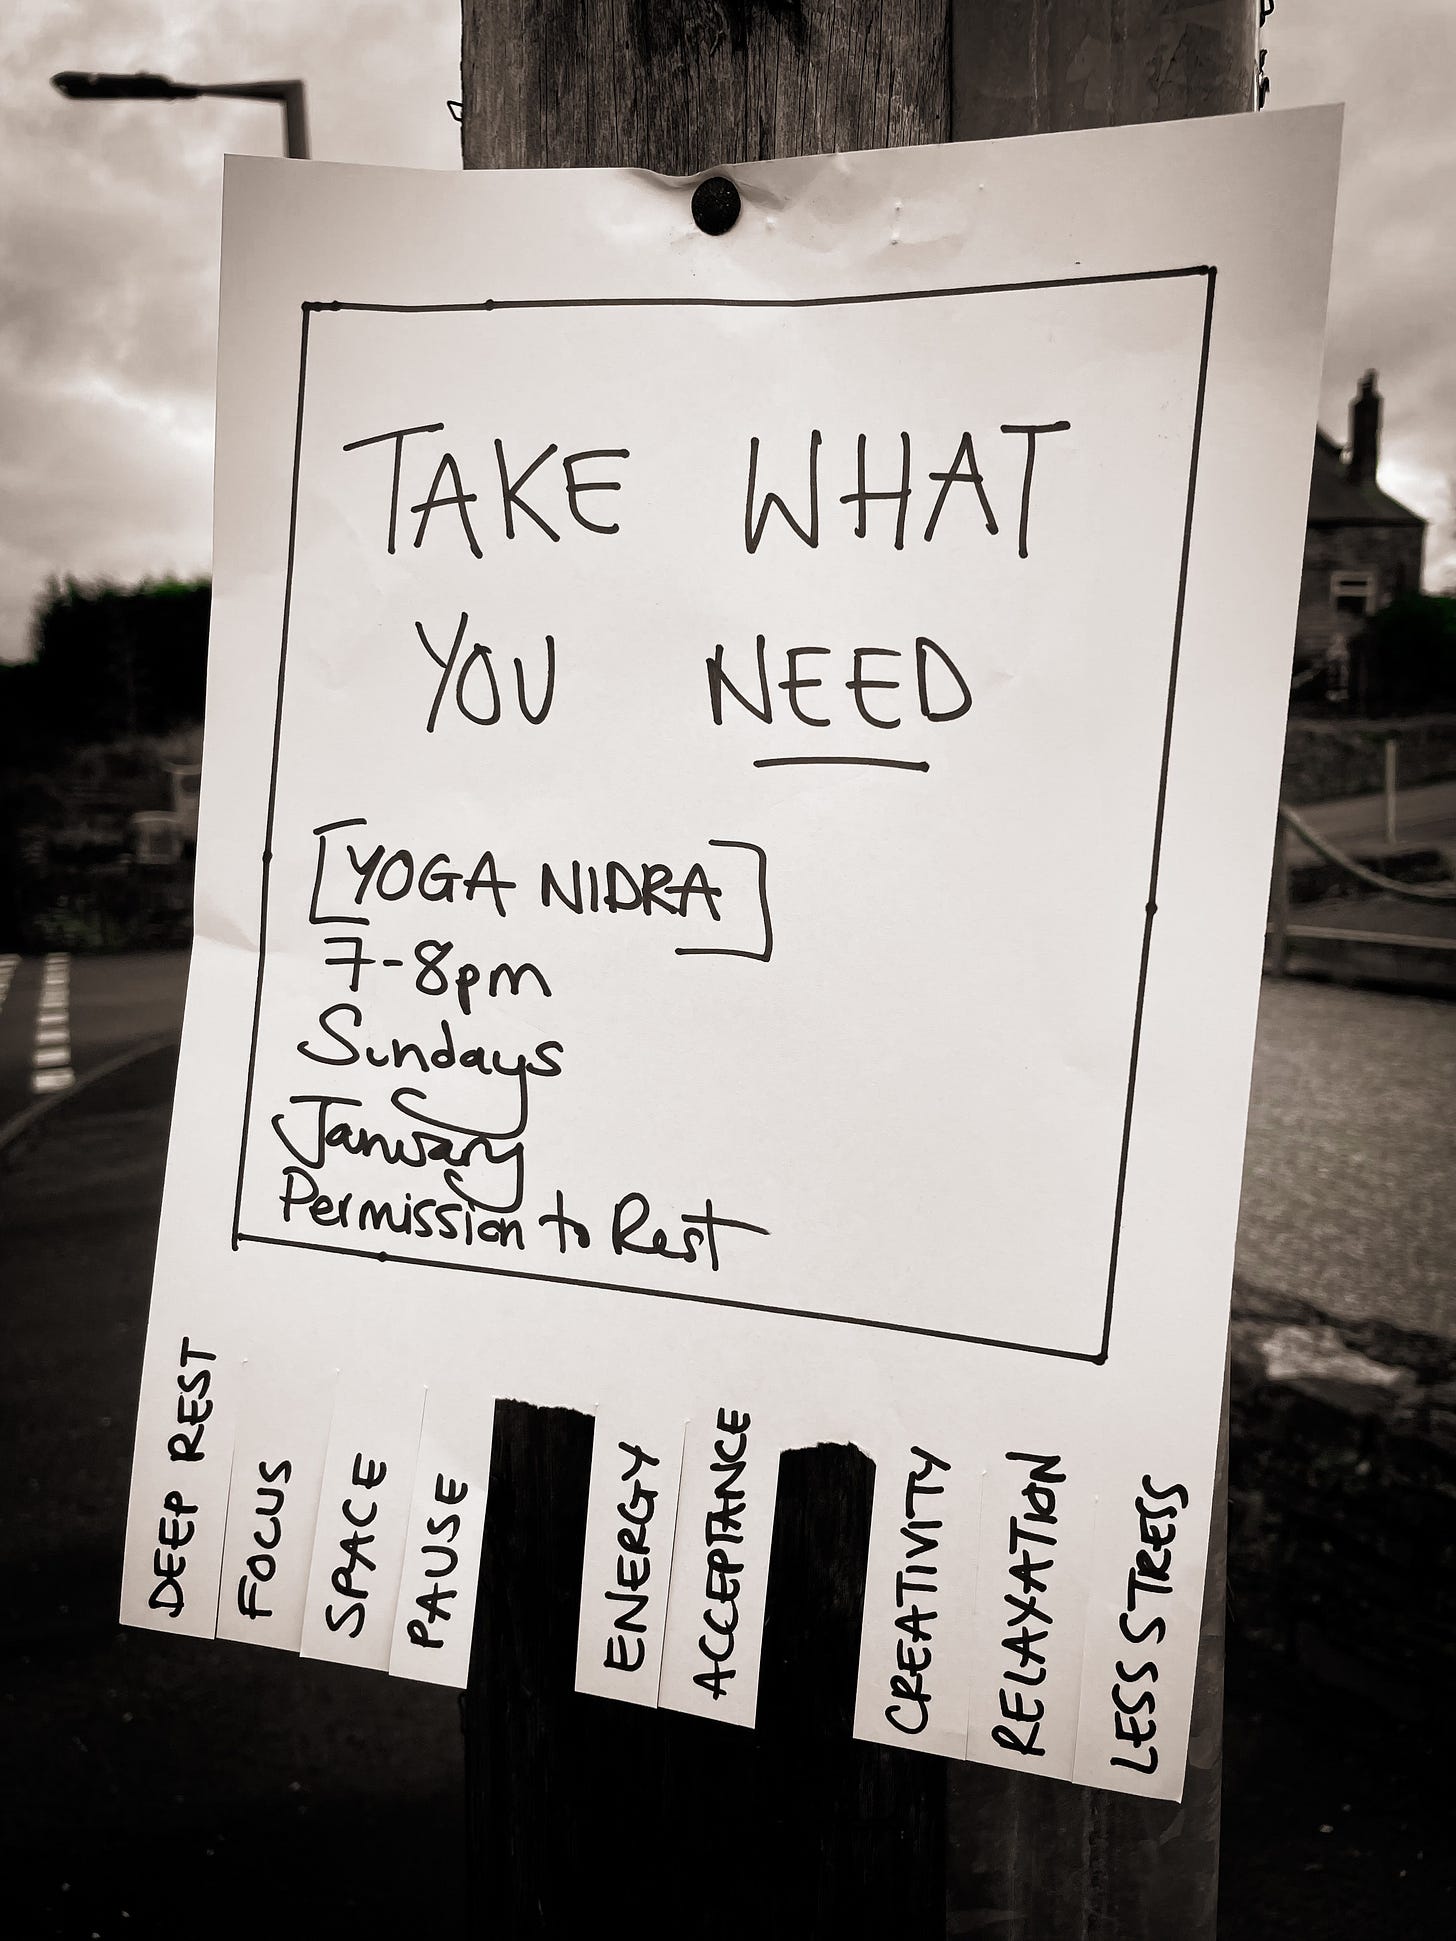 TAKE WHAT
YOU NEED
[YOGA NIDRA]
7-8pm
Sundays
January
Permission to Rest
DEEP REST
FOCUS
SPACE
PAUSE
ENERGY
ACCEPTANCE
CREATIVITY
RELAXATION
LESS STRESS